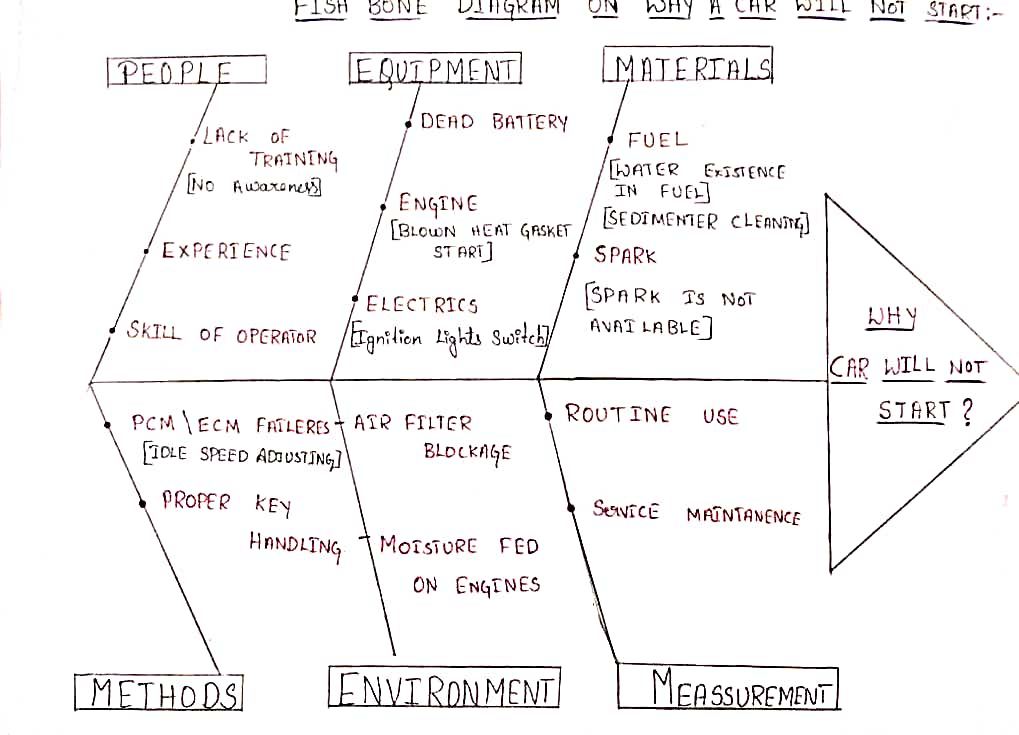 FISH BONE DIAGRAM ON WHY A CAR WILL NOT START:-
PEOPLE
EQUIPMENT
MATERIALS
LACK OF
TRAINING
[NO AWARENESS]
EXPERIENCE
SKILL OF OPERATOR
DEAD BATTERY
ENGINE
[BLOWN HEAT GASKET
START]
ELECTRICS
[Ignition Lights Switch]
FUEL
[WATER EXISTENCE
IN FUEL]
[SEDIMENTER CLEANING]
SPARK
[SPARK IS NOT
AVAILABLE]
WHY
CAR WILL NOT
START?
PCM\ECM FAILERES
[IDLE SPEED ADJUSTING]
PROPER KEY
HANDLING
AIR FILTER
BLOCKAGE
MOISTURE FED
ON ENGINES
ROUTINE USE
SERVICE MAINTANENCE
METHODS
ENVIRONMENT
MEASSUREMENT